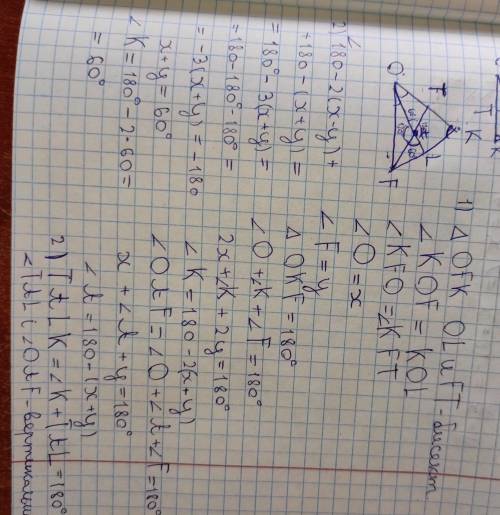 1) △ OFK OL и FT - биссект
∠KOF = KOL
∠KFO = ∠KFT
∠O = x
∠F = y
△ OKF = 180°
∠O + ∠K + ∠F = 180°
2x + ∠K + 2y = 180°
∠K = 180 - 2(x + y)
∠OtF = ∠O + ∠t + ∠F = 180°
x + ∠t + y = 180°
∠t = 180 - (x + y)
2) TtLK = ∠K + TtL = 180°
∠TtL и ∠OtF - вертикальн
O
T
K
L
F
2) 180 - 2(x - y) +
+ 180 - (x + y) =
= 180° - 3(x + y) =
= 180 - 180° - 180° =
= -3(x + y) = -180
x + y = 60°
∠K = 180° - 2 · 60 =
= 60°